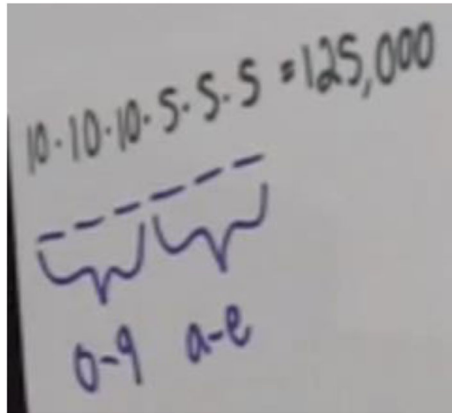 10·10·10·5·5·5 = 125,000
0-9 a-e